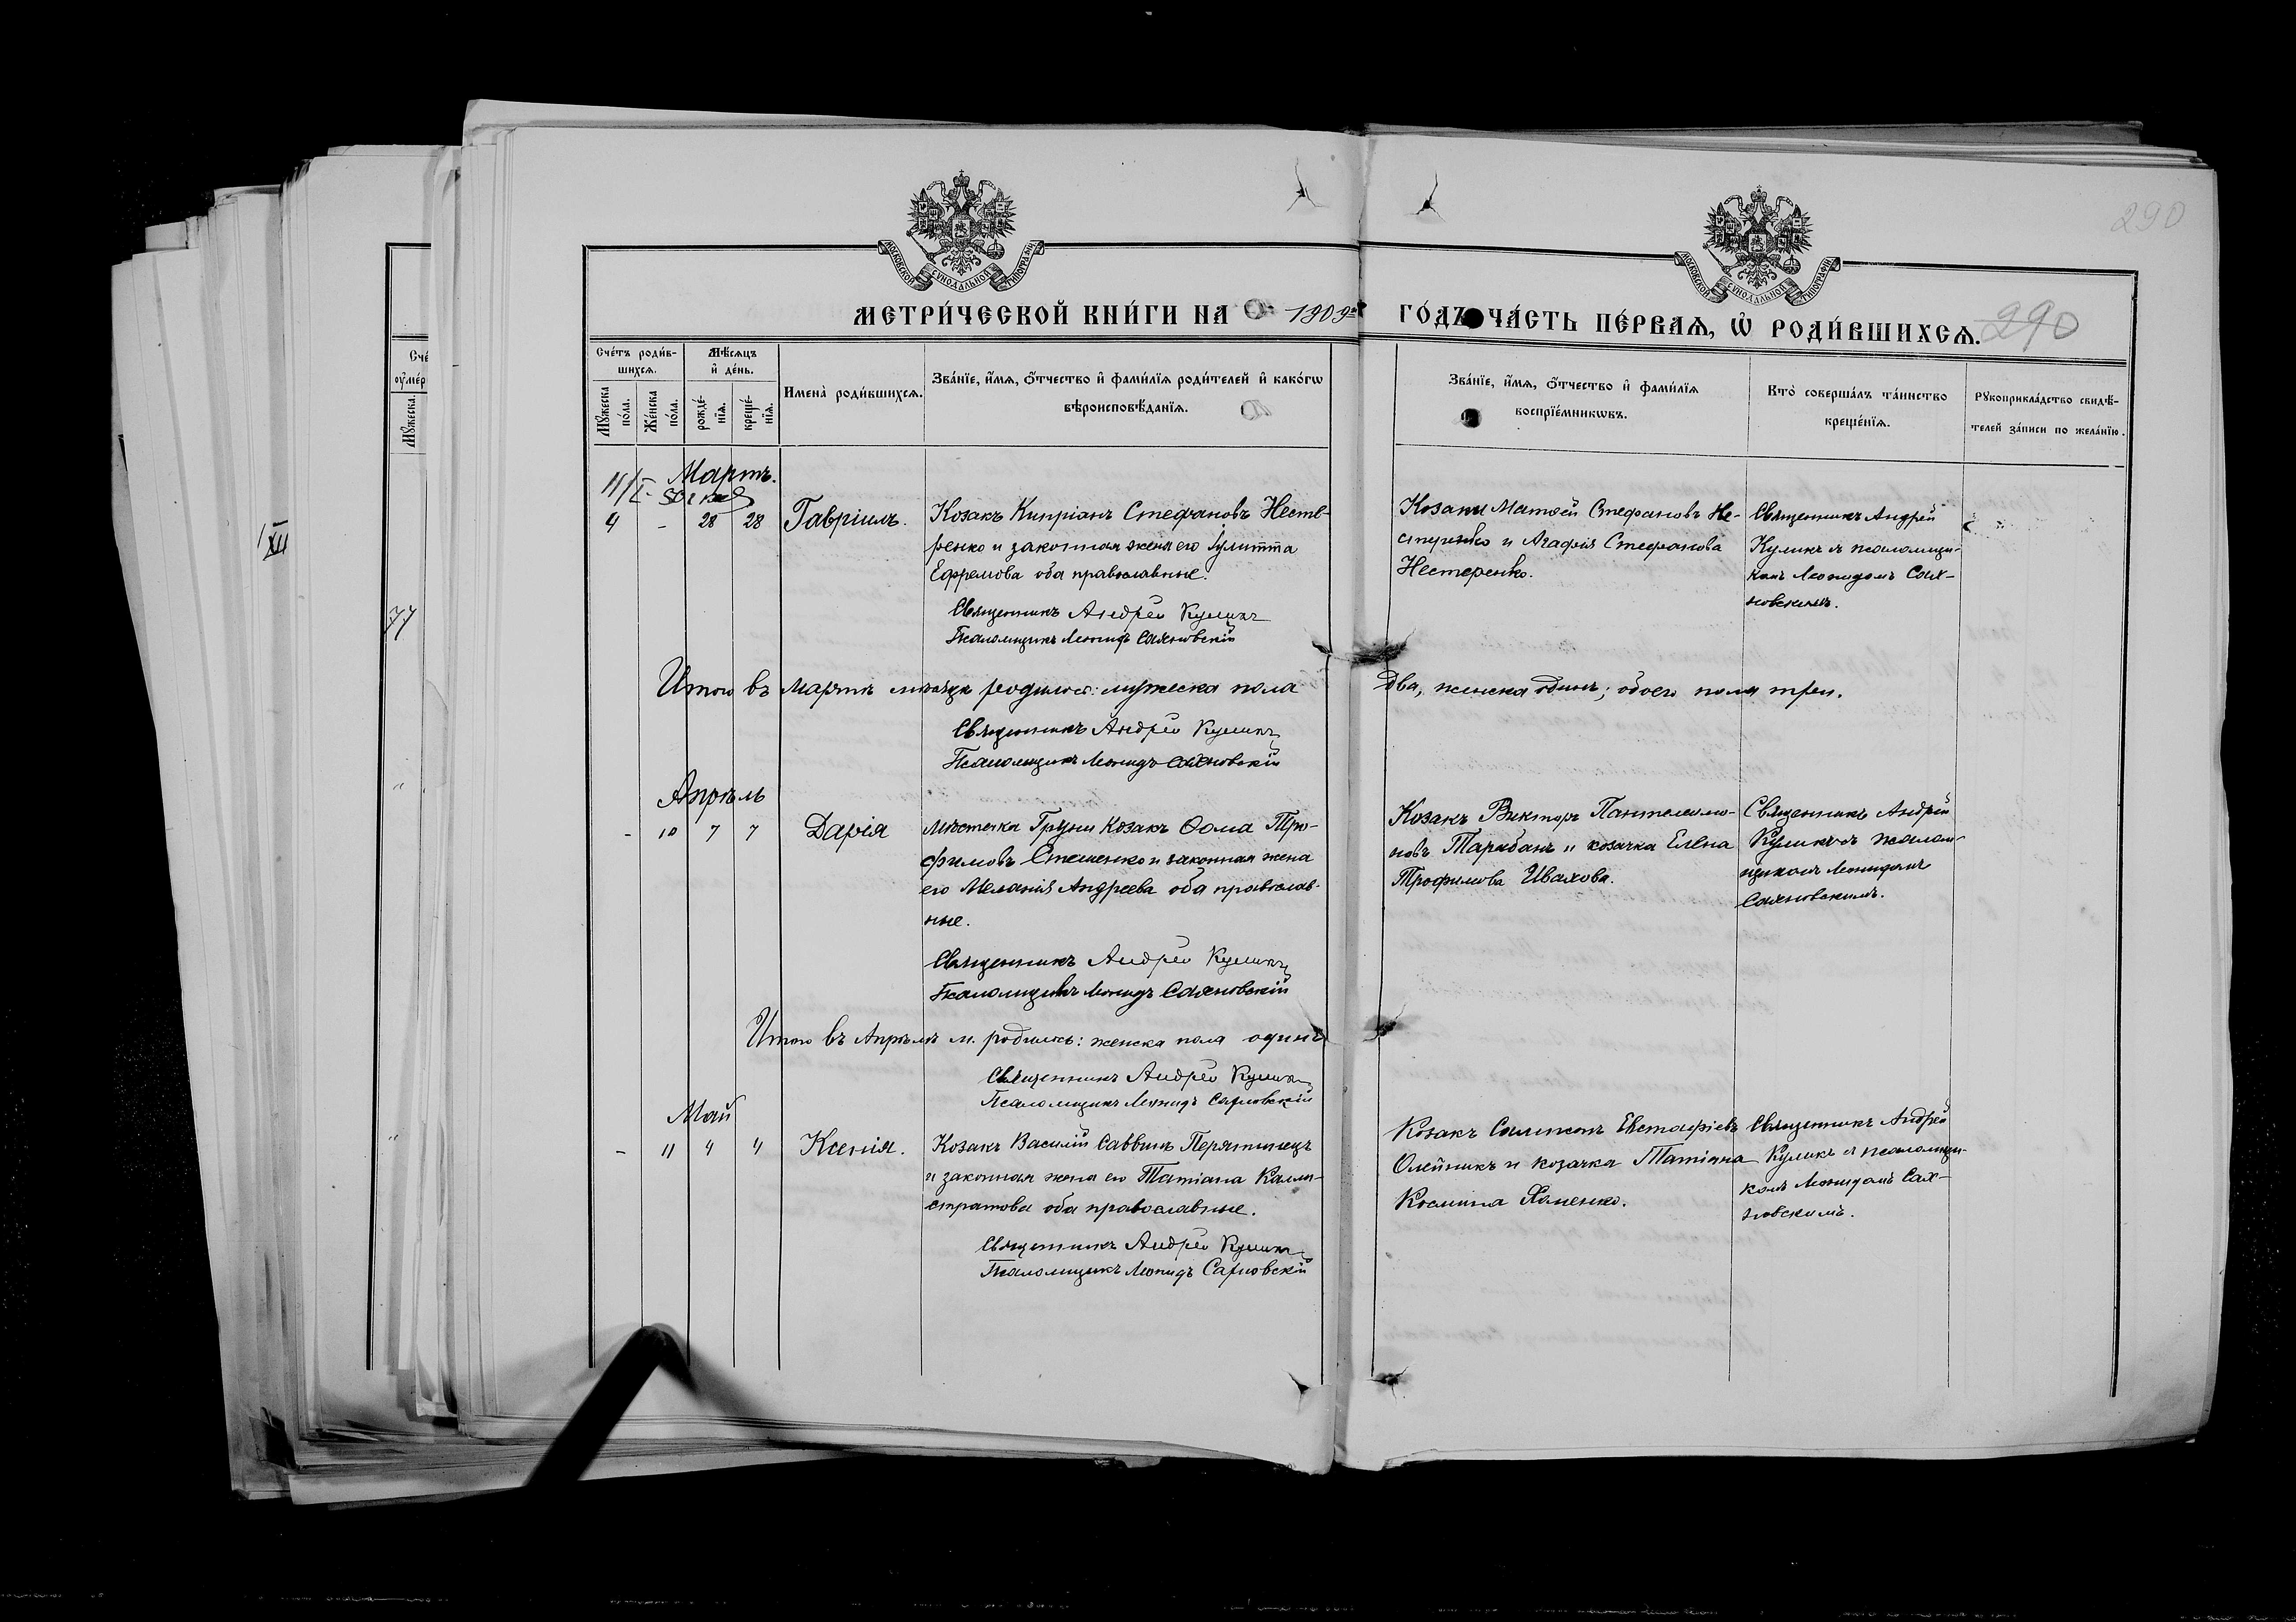 290
МОСКОВСКОЙ СУНОДАЛЬНОЙ ТИПОГРАФІИ
МОСКОВСКОЙ СУНОДАЛЬНОЙ ТИПОГРАФІИ
МЕТРИ́ЧЕСКОЙ КНИ́ГИ НА 1909
ГО́ДЪ ЧА́СТЬ ПЕ́РВАѦ, Ѡ҆ РОДИ́ВШИХСѦ. 290
Сче́тъ роди́в-
шихсѧ.
Мꙋ́жеска по́ла.
Же́нска по́ла.
Мѣ́сѧцъ
и҆ де́нь.
рожде́-
нїѧ.
креще́-
нїѧ.
И҆мена̀ роди́вшихсѧ.
Зва́нїе, и҆́мѧ, ѻ҆́тчество и҆ фами́лїѧ роди́телей и҆ како́гѡ
вѣроисповѣ́данїѧ.
Зва́нїе, и҆́мѧ, ѻ҆́тчество и҆ фами́лїѧ
воспрїе́мникѡвъ.
Кто̀ соверша́лъ та́инство
креще́нїѧ.
Рꙋкоприкла́дство свидѣ́-
телей за́писи по жела́нїю.
Мартъ.
4 - 28 28 Гавріилъ.
Козакъ Кипріанъ Стефановъ Несте-
ренко и законная жена его Іулитта
Ефремова оба православные.
Священникъ Андрей Куликъ
Псаломщикъ Леонидъ Сахновскій
Козаки Матѳей Стефановъ Не-
стеренко и Агафія Стефанова
Нестеренко.
Священникъ Андрей
Куликъ съ псаломщи-
комъ Леонидомъ Сах-
новскимъ.
Итого въ Мартѣ мѣсяцѣ родилось: мужеска пола два, женска одинъ; обоего пола три.
Священникъ Андрей Куликъ
Псаломщикъ Леонидъ Сахновскій
Апрѣль
- 10 7 7 Дарія
Мѣстечка Груни Козакъ Ѳома Тро-
фимовъ Стешенко и законная жена
его Меланія Андреева оба православ-
ные.
Священникъ Андрей Куликъ
Псаломщикъ Леонидъ Сахновскій
Козакъ Викторъ Пантелеимо-
новъ Тарабанъ и козачка Елена
Трофимова Ивахова.
Священникъ Андрей
Куликъ съ псалом-
щикомъ Леонидомъ
Сахновскимъ.
Итого въ Апрѣлѣ м. родилось: женска пола одинъ
Священникъ Андрей Куликъ
Псаломщикъ Леонидъ Сахновскій
Май
- 11 4 4 Ксенія.
Козакъ Василій Саввинъ Перятинецъ
и законная жена его Татіана Калли-
стратова оба православные.
Священникъ Андрей Куликъ
Псаломщикъ Леонидъ Сахновскій
Козакъ Сампсонъ Евстафіевъ
Олейникъ и козачка Татіана
Космина Хоменко.
Священникъ Андрей
Куликъ съ псаломщи-
комъ Леонидомъ Сах-
новскимъ.
77
XII